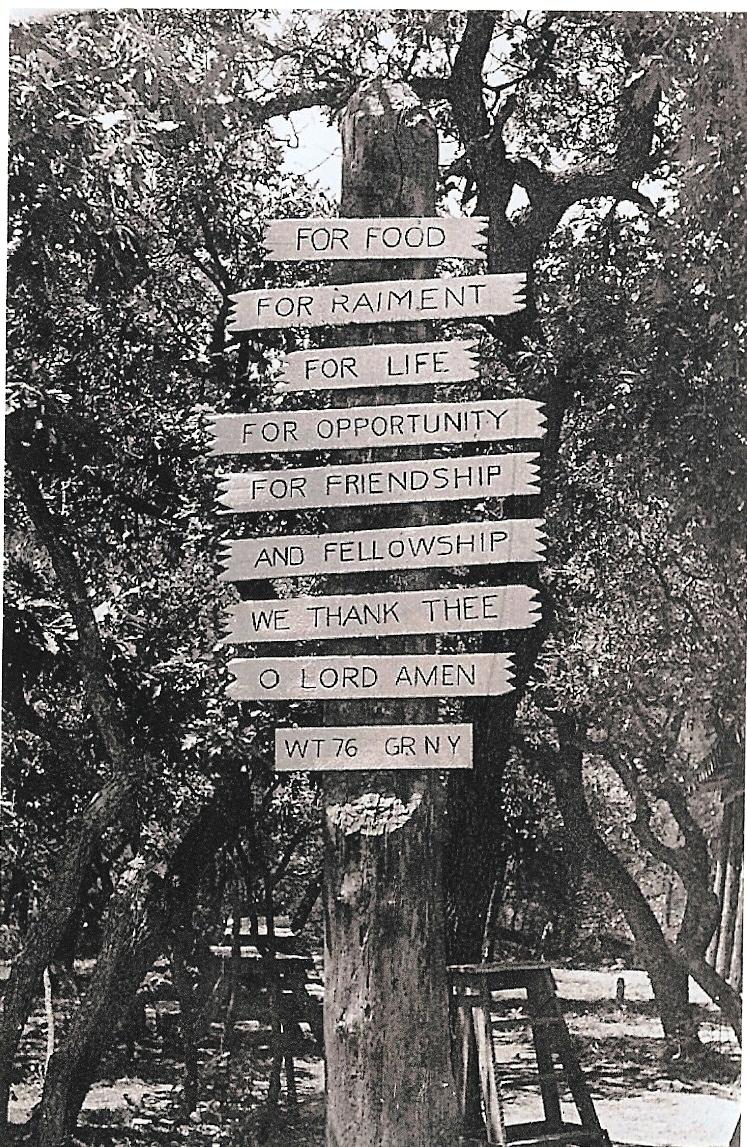 FOR FOOD
FOR RAIMENT
FOR LIFE
FOR OPPORTUNITY
FOR FRIENDSHIP
AND FELLOWSHIP
WE THANK THEE
O LORD AMEN
WT 76 GR NY